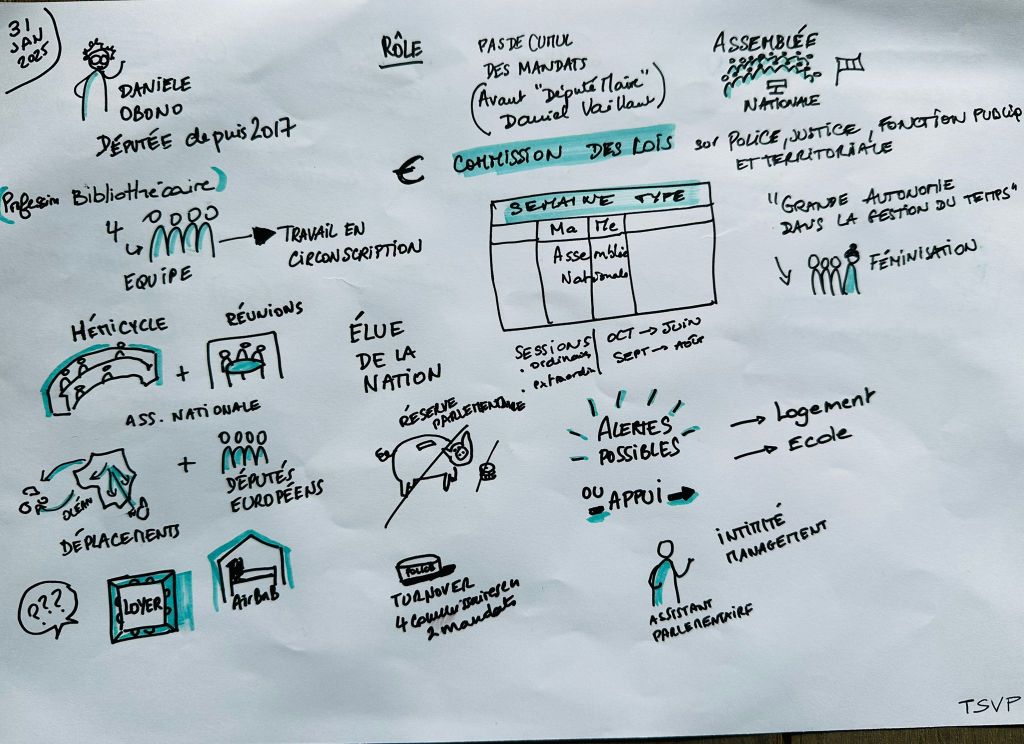 31
JAN
2025
DANIELE
OBONO
DÉPUTÉE depuis 2017
(Profession Bibliothécaire)
4
EQUIPE
TRAVAIL EN
CIRCONSCRIPTION
RÔLE
PAS DE CUMUL
DES MANDATS
(Avant "Député Maire"
Daniel Vaillant)
ASSEMBLÉE
NATIONALE
€
COMMISSION DES LOIS
sur POLICE, JUSTICE, FONCTION PUBLIQ
ET TERRITORIALE
SEMAINE TYPE
Ma Me
Assemblée
Nationale
"GRANDE AUTONOMIE
DANS LA GESTION DU TEMPS"
FÉMINISATION
SESSIONS
• ordinaires
• extraordi
OCT → JUIN
SEPT → AOÛT
HÉMICYCLE
+
RÉUNIONS
ASS. NATIONALE
ÉLUE
DE LA
NATION
RÉSERVE
PARLEMENTAIRE
ALERTES
POSSIBLES
→ Logement
→ Ecole
OU
APPUI
OCÉAN
+
DÉPUTÉS
EUROPÉENS
DÉPLACEMENTS
???
LOYER
AirBnB
POLICE
TURNOVER
4 commissaires en
2 mandats
INTIMITÉ
MANAGEMENT
ASSISTANT
PARLEMENTAIRE
TSVP